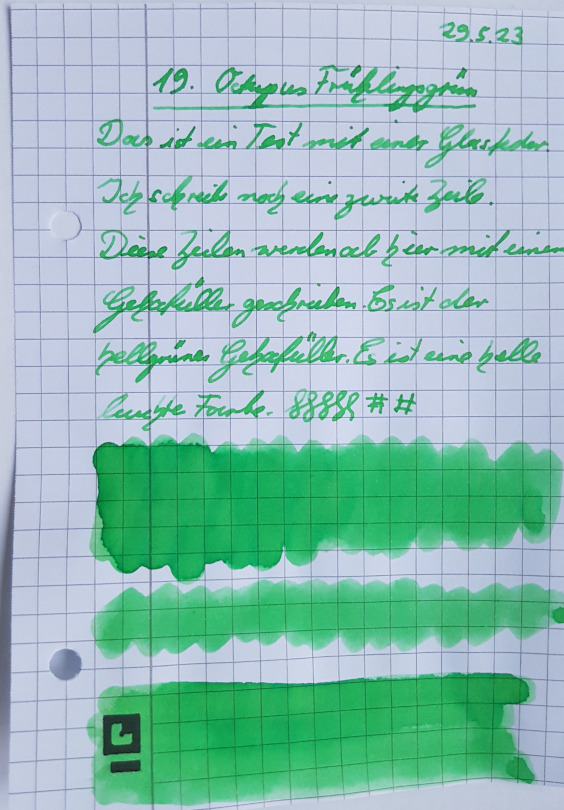 29.5.23
19. Octopus Frühlingsgrün
Das ist ein Test mit einer Glasfeder.
Ich schreibe noch eine zweite Zeile.
Diese Zeilen werden ab hier mit einem
Gehafüller geschrieben. Es ist der
hellgrüner Gehafüller. Es ist eine helle
leuchte Farbe. §§§§§ # #